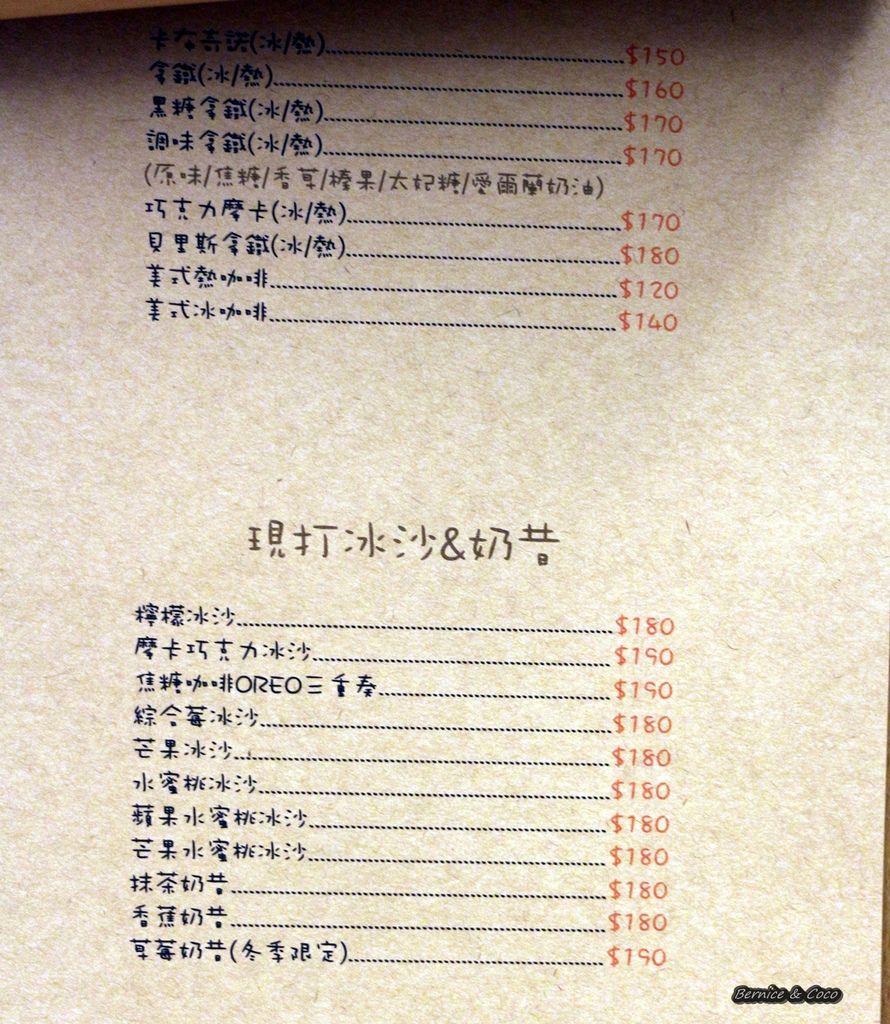 卡布奇諾(冰/熱)$150
拿鐵(冰/熱)$160
黑糖拿鐵(冰/熱)$170
調味拿鐵(冰/熱)$170
(原味/焦糖/香草/榛果/太妃糖/愛爾蘭奶油)
巧克力摩卡(冰/熱)$170
貝里斯拿鐵(冰/熱)$180
美式熱咖啡$120
美式冰咖啡$140
現打冰沙&奶昔
檸檬冰沙$180
摩卡巧克力冰沙$190
焦糖咖啡OREO三重奏$190
綜合莓冰沙$180
芒果冰沙$180
水蜜桃冰沙$180
蘋果水蜜桃冰沙$180
芒果水蜜桃冰沙$180
抹茶奶昔$180
香蕉奶昔$180
草莓奶昔(冬季限定)$190
Bernice & Coco